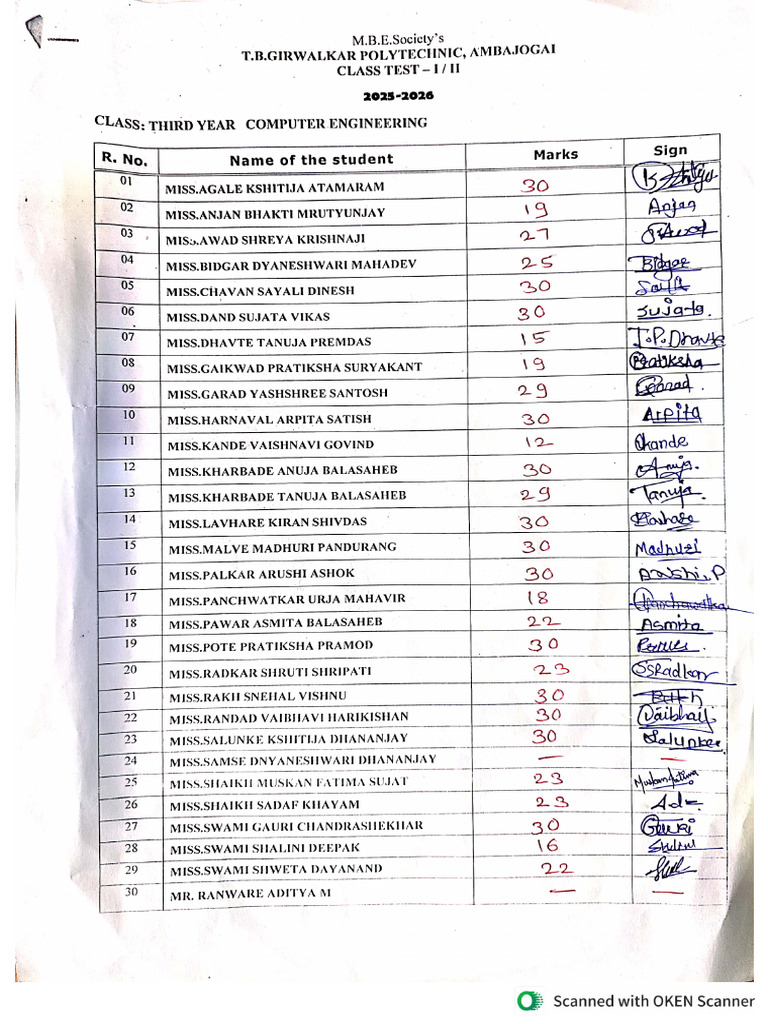 M.B.E.Society's
T.B.GIRWALKAR POLYTECHNIC, AMBAJOGAI
CLASS TEST – I / II
2025-2026
CLASS: THIRD YEAR COMPUTER ENGINEERING
R. No. Name of the student Marks Sign
01 MISS.AGALE KSHITIJA ATAMARAM 30
02 MISS.ANJAN BHAKTI MRUTYUNJAY 19 Anjan
03 MISS.AWAD SHREYA KRISHNAJI 27 S.Awad
04 MISS.BIDGAR DYANESHWARI MAHADEV 25 Bidgar
05 MISS.CHAVAN SAYALI DINESH 30
06 MISS.DAND SUJATA VIKAS 30 Sujata.
07 MISS.DHAVTE TANUJA PREMDAS 15 T.P.Dhavte
08 MISS.GAIKWAD PRATIKSHA SURYAKANT 19 Pratiksha
09 MISS.GARAD YASHSHREE SANTOSH 29 Garad.
10 MISS.HARNAVAL ARPITA SATISH 30 Arpita
11 MISS.KANDE VAISHNAVI GOVIND 12 Kande
12 MISS.KHARBADE ANUJA BALASAHEB 30 Anuja.
13 MISS.KHARBADE TANUJA BALASAHEB 29 Tanuja.
14 MISS.LAVHARE KIRAN SHIVDAS 30
15 MISS.MALVE MADHURI PANDURANG 30 Madhuri
16 MISS.PALKAR ARUSHI ASHOK 30
17 MISS.PANCHWATKAR URJA MAHAVIR 18 Panchawatkar
18 MISS.PAWAR ASMITA BALASAHEB 22 Asmita
19 MISS.POTE PRATIKSHA PRAMOD 30
20 MISS.RADKAR SHRUTI SHRIPATI 23 SSRadkar
21 MISS.RAKH SNEHAL VISHNU 30
22 MISS.RANDAD VAIBHAVI HARIKISHAN 30 Vaibhavi
23 MISS.SALUNKE KSHITIJA DHANANJAY 30 Salunkee
24 MISS.SAMSE DNYANESHWARI DHANANJAY — —
25 MISS.SHAIKH MUSKAN FATIMA SUJAT 23 Muskanfatima
26 MISS.SHAIKH SADAF KHAYAM 23
27 MISS.SWAMI GAURI CHANDRASHEKHAR 30 Gauri
28 MISS.SWAMI SHALINI DEEPAK 16
29 MISS.SWAMI SHWETA DAYANAND 22
30 MR. RANWARE ADITYA M — —
Scanned with OKEN Scanner